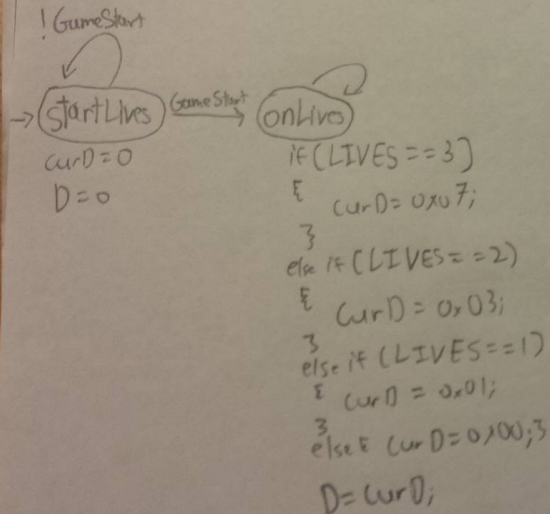 !GameStart
startLives GameStart onLives
curD=0
D=0
if(LIVES==3)
{
curD=0x07;
}
else if(LIVES==2)
{
curD=0x03;
}
else if(LIVES==1)
{ curD=0x01;
}
else{ curD=0x00;}
D=curD;